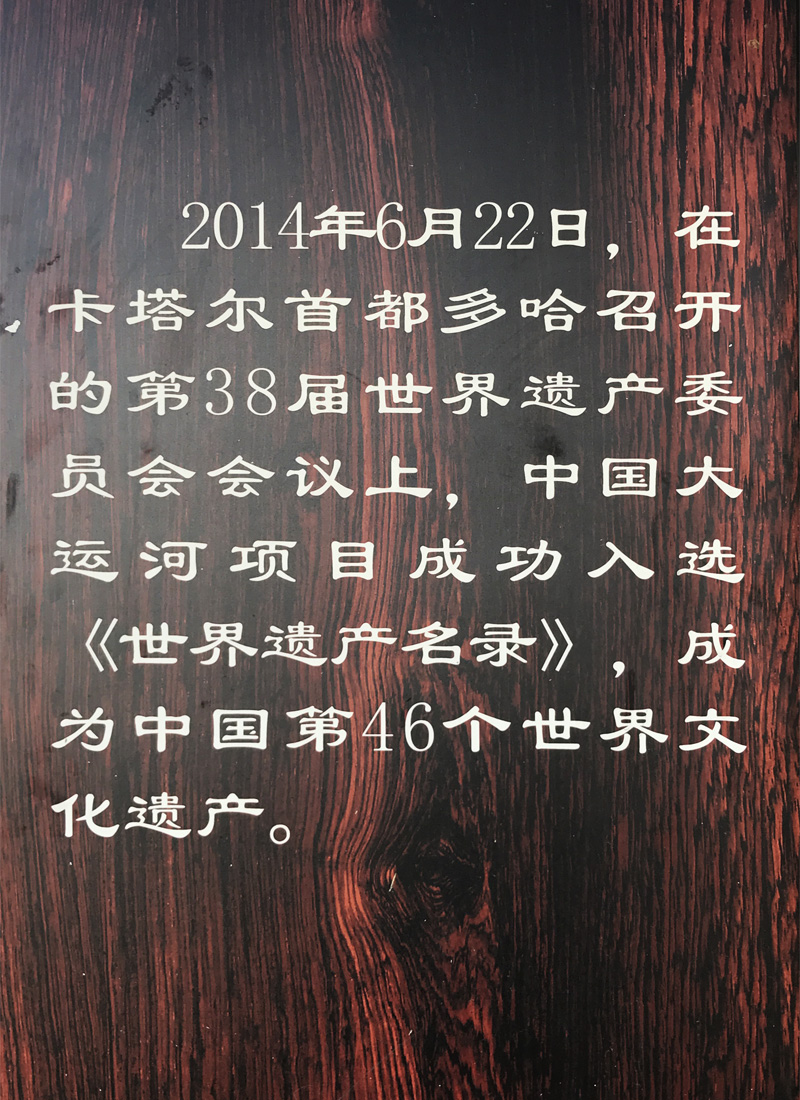 2014年6月22日，在
卡塔尔首都多哈召开
的第38届世界遗产委
员会会议上，中国大
运河项目成功入选
《世界遗产名录》，成
为中国第46个世界文
化遗产。